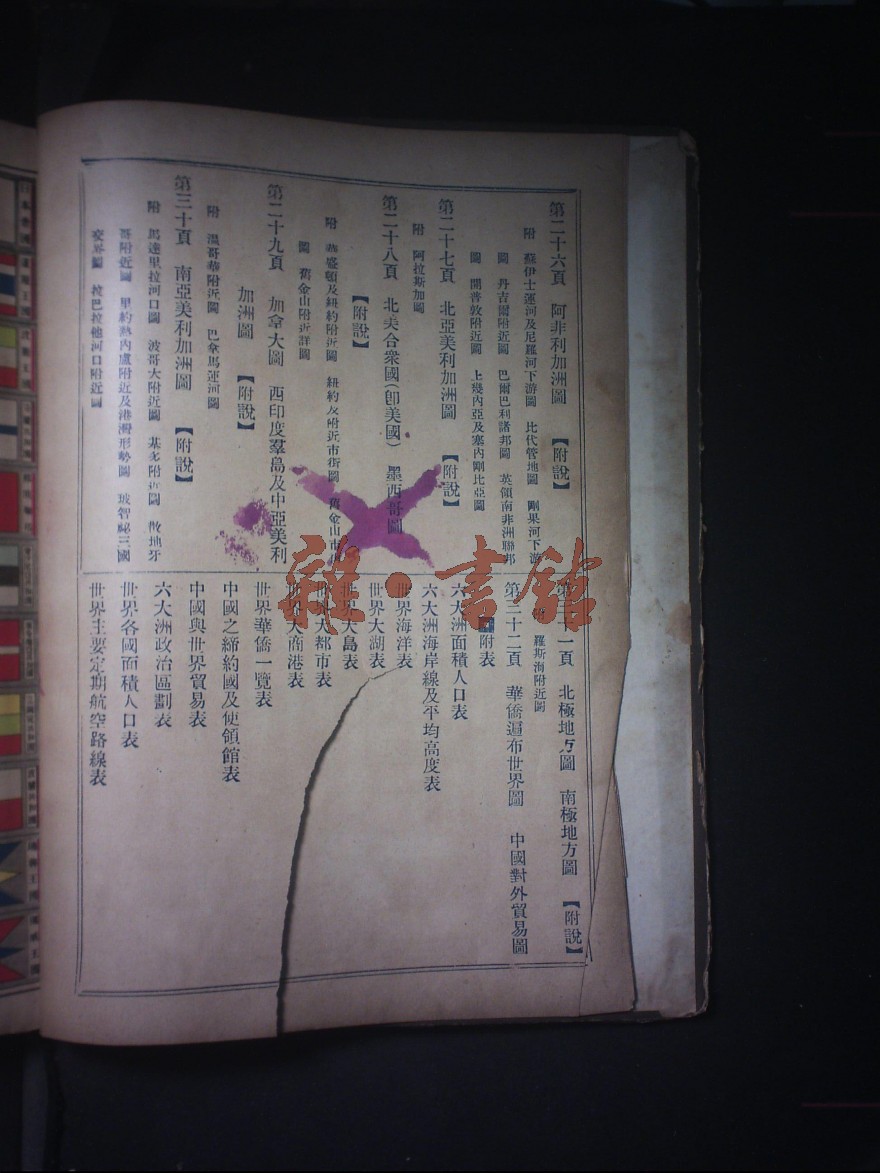 第二十六頁　阿非利加洲圖　【附說】
附　蘇伊士運河及尼羅河下游圖　比代管地圖　剛果河下游
圖　丹吉爾附近圖　巴爾巴利諸邦圖　英領南非洲聯邦
圖　開普敦附近圖　上幾內亞及塞內剛比亞圖
第二十七頁　北亞美利加洲圖　【附說】
附　阿拉斯加圖
第二十八頁　北美合衆國(卽美國)　墨西哥圖
【附說】
附　華盛頓及紐約附近圖　紐約及附近市街圖　舊金山市
圖　舊金山附近詳圖
第二十九頁　加拿大圖　西印度羣島及中亞美利
加洲圖　【附說】
附　溫哥華附近圖　巴拿馬運河圖
第三十頁　南亞美利加洲圖　【附說】
附　馬達里拉河口圖　波哥大附近圖　基多附近圖　散地牙
哥附近圖　里約熱內盧附近及港灣形勢圖　玻智祕三國
交界圖　拉巴拉他河口附近圖
第　十一頁　北極地方圖　南極地方圖　【附說】
附　羅斯海附近圖
第三十二頁　華僑遍布世界圖　中國對外貿易圖
附表
六大洲面積人口表
六大洲海岸線及平均高度表
世界海洋表
世界大湖表
世界大島表
世界大都市表
世界大商港表
世界華僑一覽表
中國之締約國及使領館表
中國與世界貿易表
六大洲政治區劃表
世界各國面積人口表
世界主要定期航空路線表
雜·書館